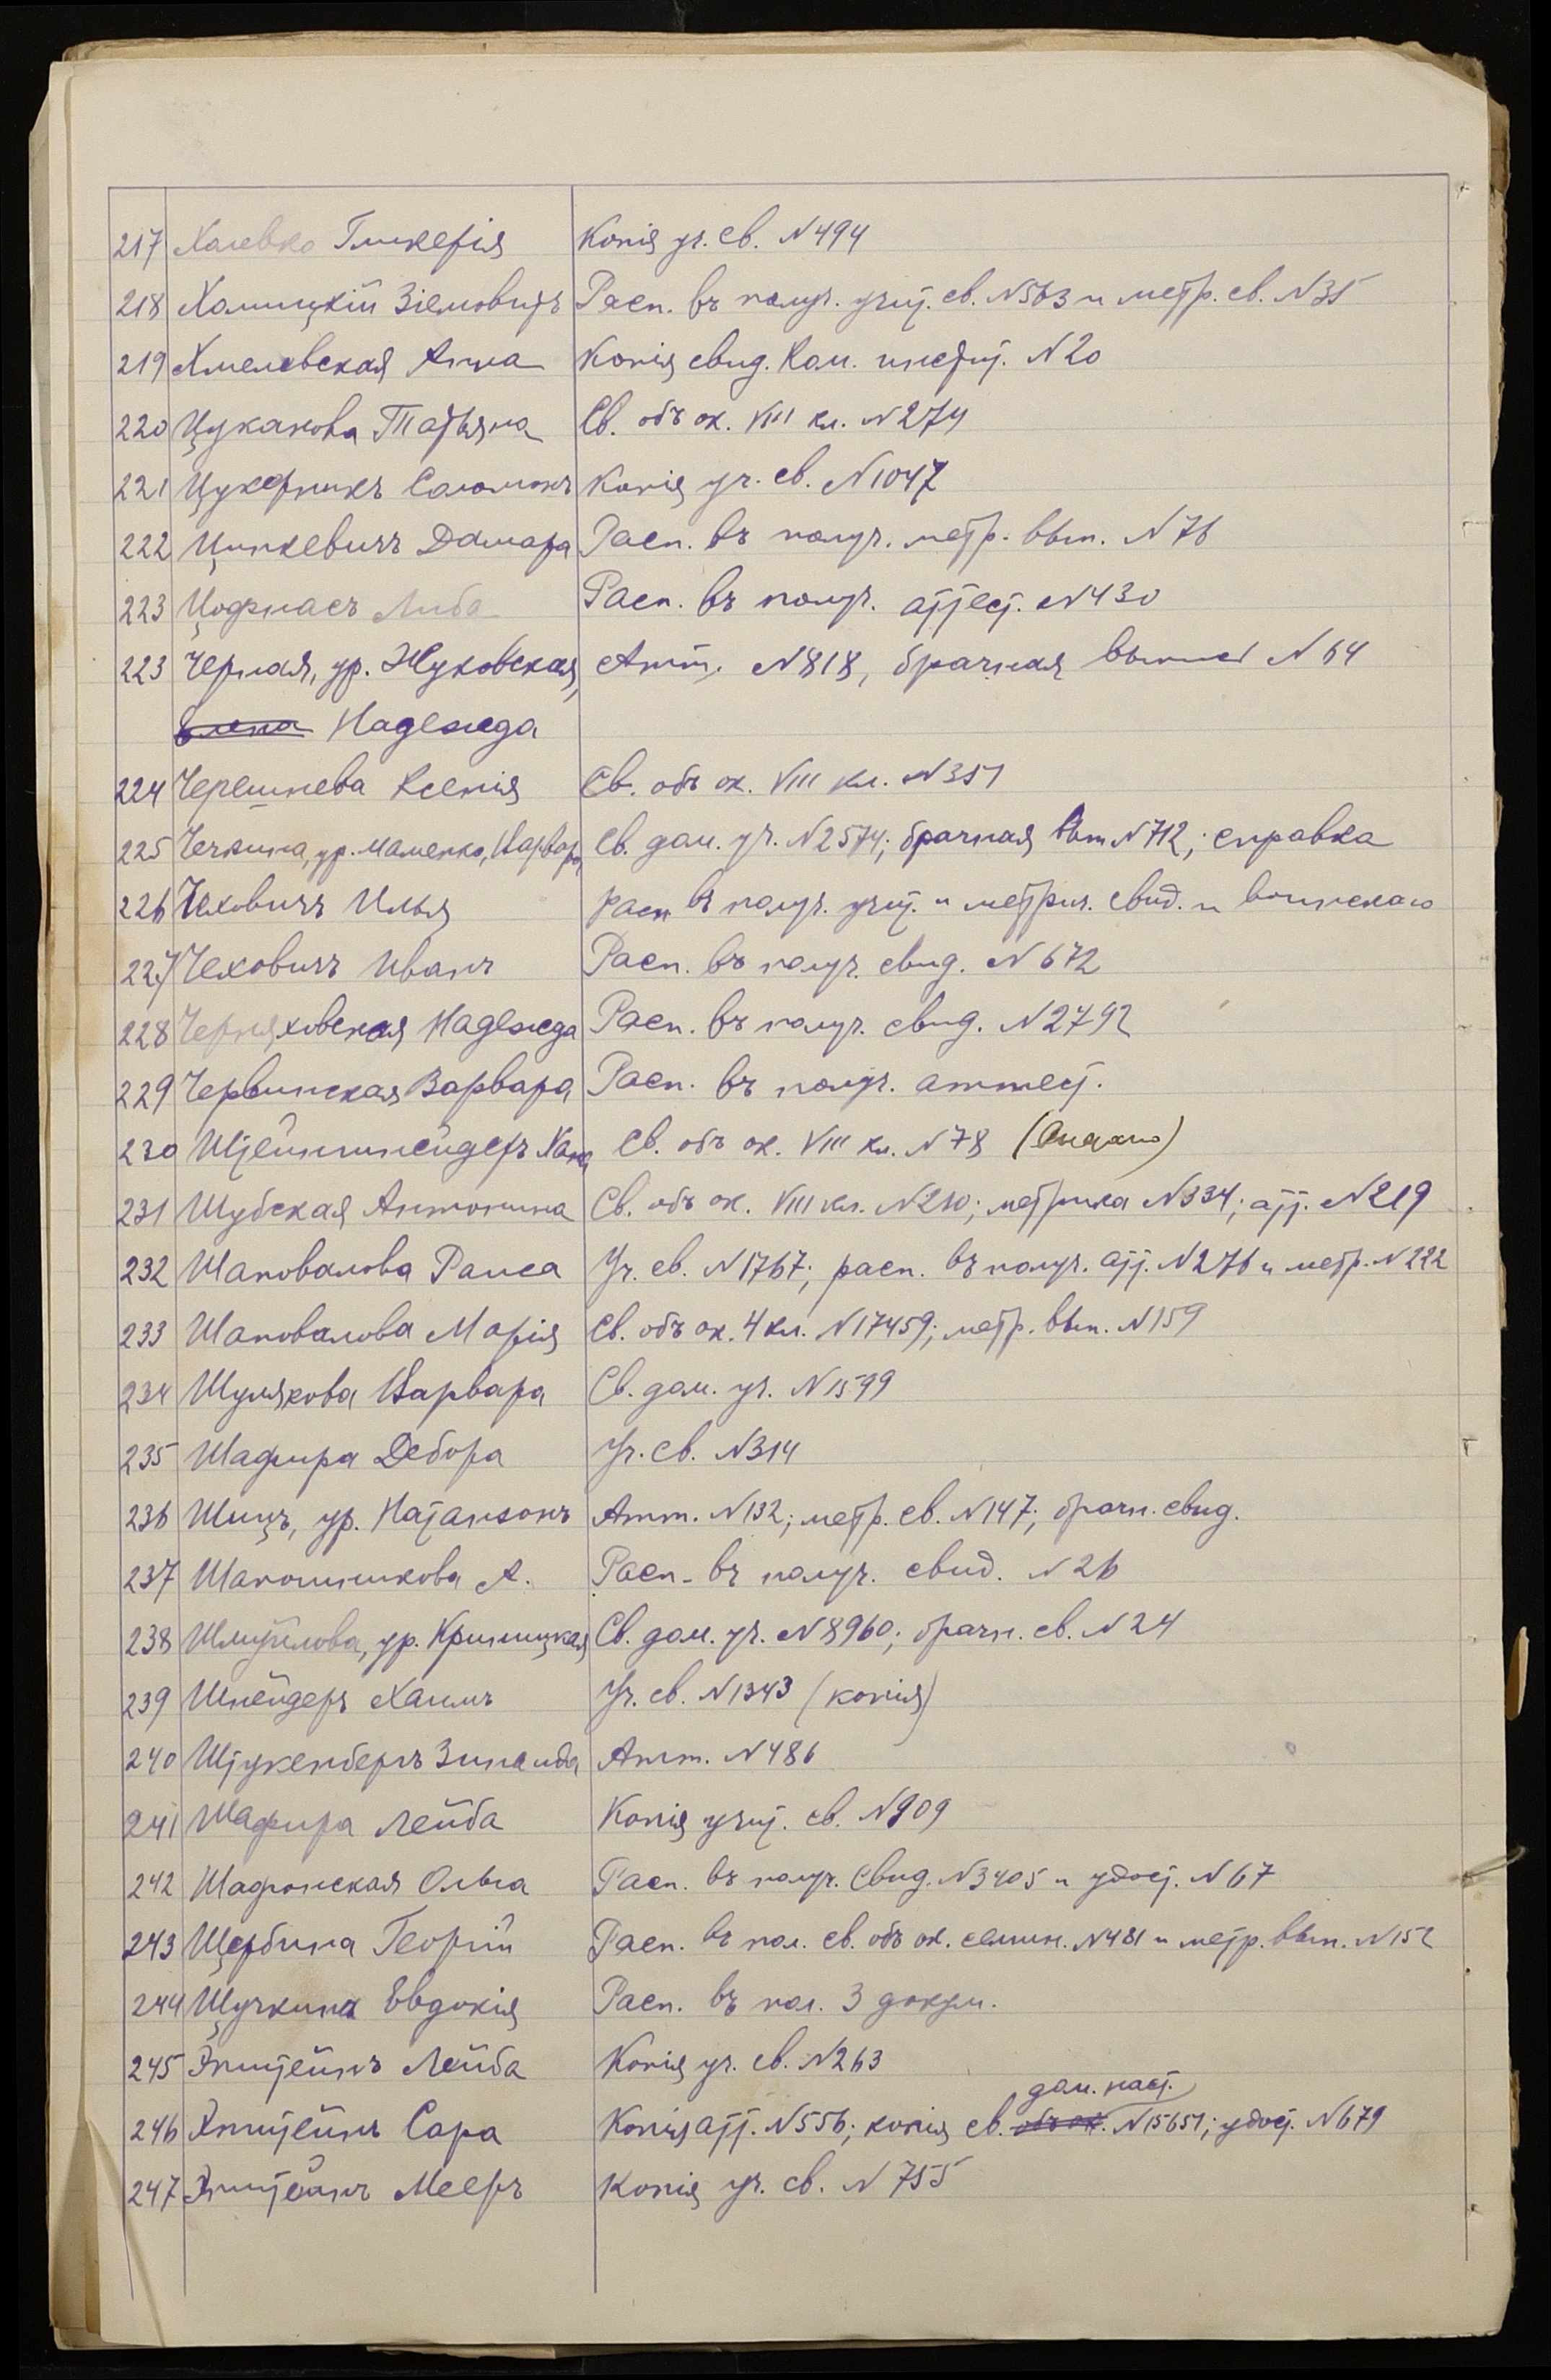 217 Халевко Гликерія Копія уч. св. N494
218 Халицкій Зіемовитъ Расп. въ получ. учит. св. N563 и метр. св. N35
219 Хмелевская Анна Копія свид. Ком. институт. N20
220 Цуканова Татьяна Св. объ ок. VIII кл. N274
221 Цукерникъ Соломонъ Копія уч. св. N1047
222 Цинкевичъ Дамара Расп. въ получ. метр. вып. N76
223 Цофнасъ Либа Расп. въ получ. аттест. N430
223 Черная, ур. Жуковская, Атт. N818, брачная выпись N64
Елена Надежда
224 Черешнева Ксенія Св. объ ок. VIII кл. N351
225 Чечкина, ур. Маменко, Варвара Св. дом. уч. N2574; брачная вып N712; справка
226 Чеховичъ Илья расп въ получ. учит. и метрич. свид. и воинскаго
227 Чеховичъ Иванъ Расп. въ получ. свид. N672
228 Черняховская Надежда Расп. въ получ. свид. N2792
229 Червинская Варвара Расп. въ получ. аттест.
230 Штейншнейдеръ Хана Св. объ ок. VIII кл. N78
231 Шубская Антонина Св. объ ок. VIII кл. N210; метрика N334; атт. N219
232 Шаповалова Раиса Уч. св. N1767; расп. въ получ. атт. N276 и метр. N222
233 Шаповалова Марія Св. объ ок. 4 кл. N17459; метр. вып. N159
234 Шулякова Варвара Св. дом. уч. N1599
235 Шафира Дебора Уч. св. N314
236 Шицъ, ур. Натансонъ Атт. N132; метр. св. N147; брачн. свид.
237 Шапошникова А. Расп. въ получ. свид. N26
238 Шмуйлова, ур. Криницкая Св. дом. уч. N8960; брачн. св. N24
239 Шнейдеръ Хаимъ Уч. св. N1343 (копія)
240 Штукенбергъ Зинаида Атт. N486
241 Шафира Лейба Копія учит. св. N909
242 Шафонская Ольга Расп. въ получ. свид. N3405 и удост. N67
243 Щербина Георгій Расп. въ пол. св. объ ок. семин. N481 и метр. вып. N152
244 Щучкина Евдокія Расп. въ пол. 3 докум.
245 Эпштейнъ Лейба Копія уч. св. N263
дом. наст.
246 Эпштейнъ Сара Копія атт. N556; копія св. объ ок. N15651; удост. N679
247 Эпштейнъ Мееръ Копія уч. св. N755